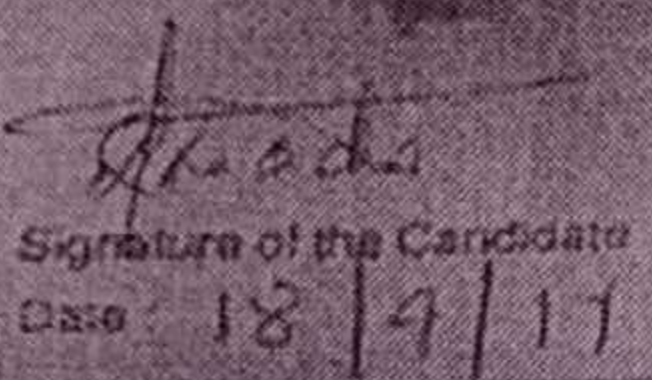 Signature of the Candidate
Date : 18/4/17